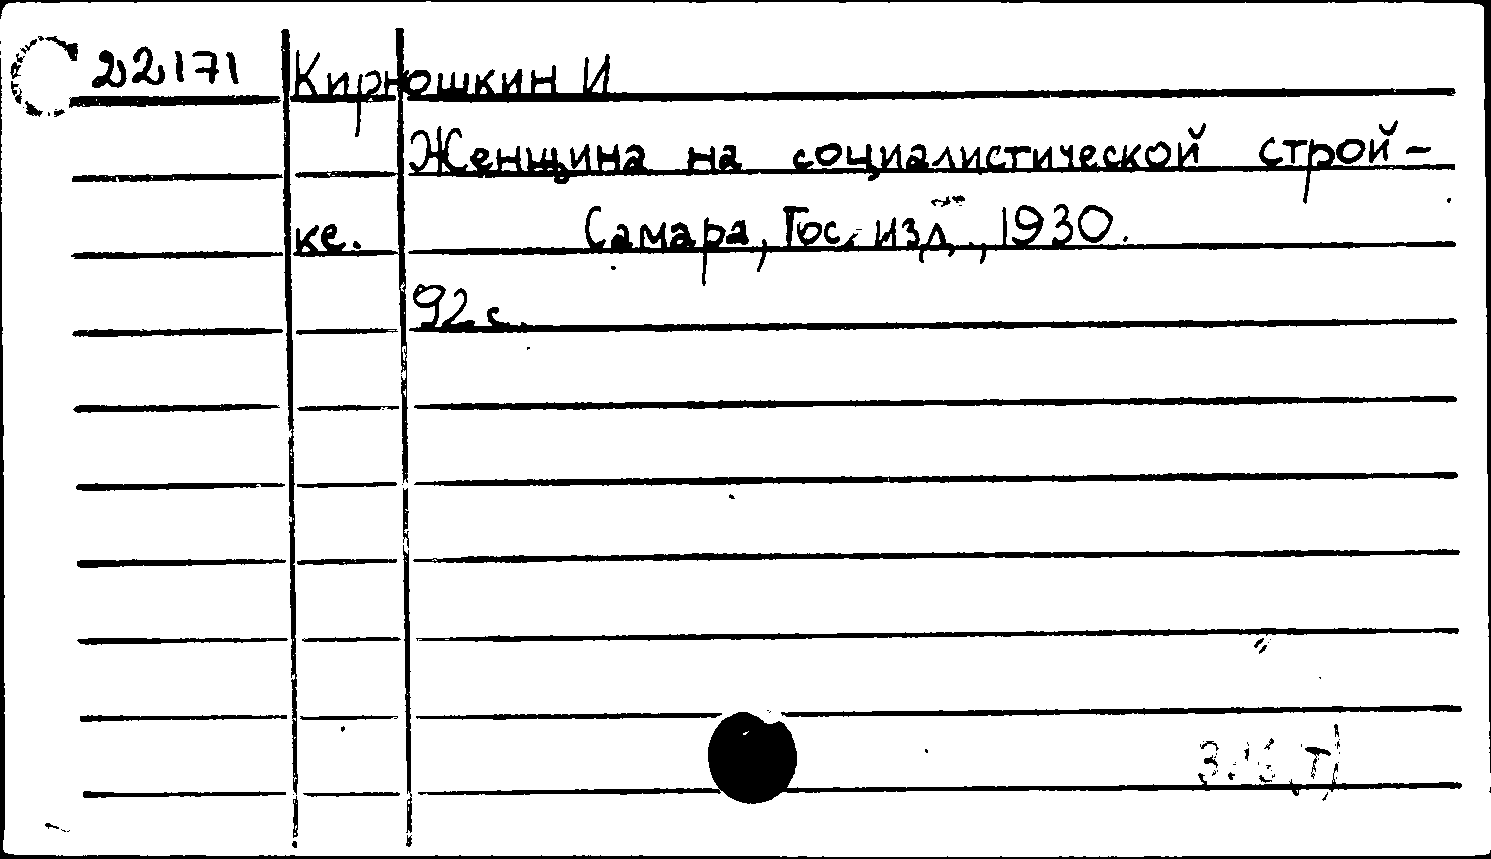 22171 Кирюшкин И
Женщина на социалистической строй-
ке. Самара, Гос. изд., 1930.
92 с.